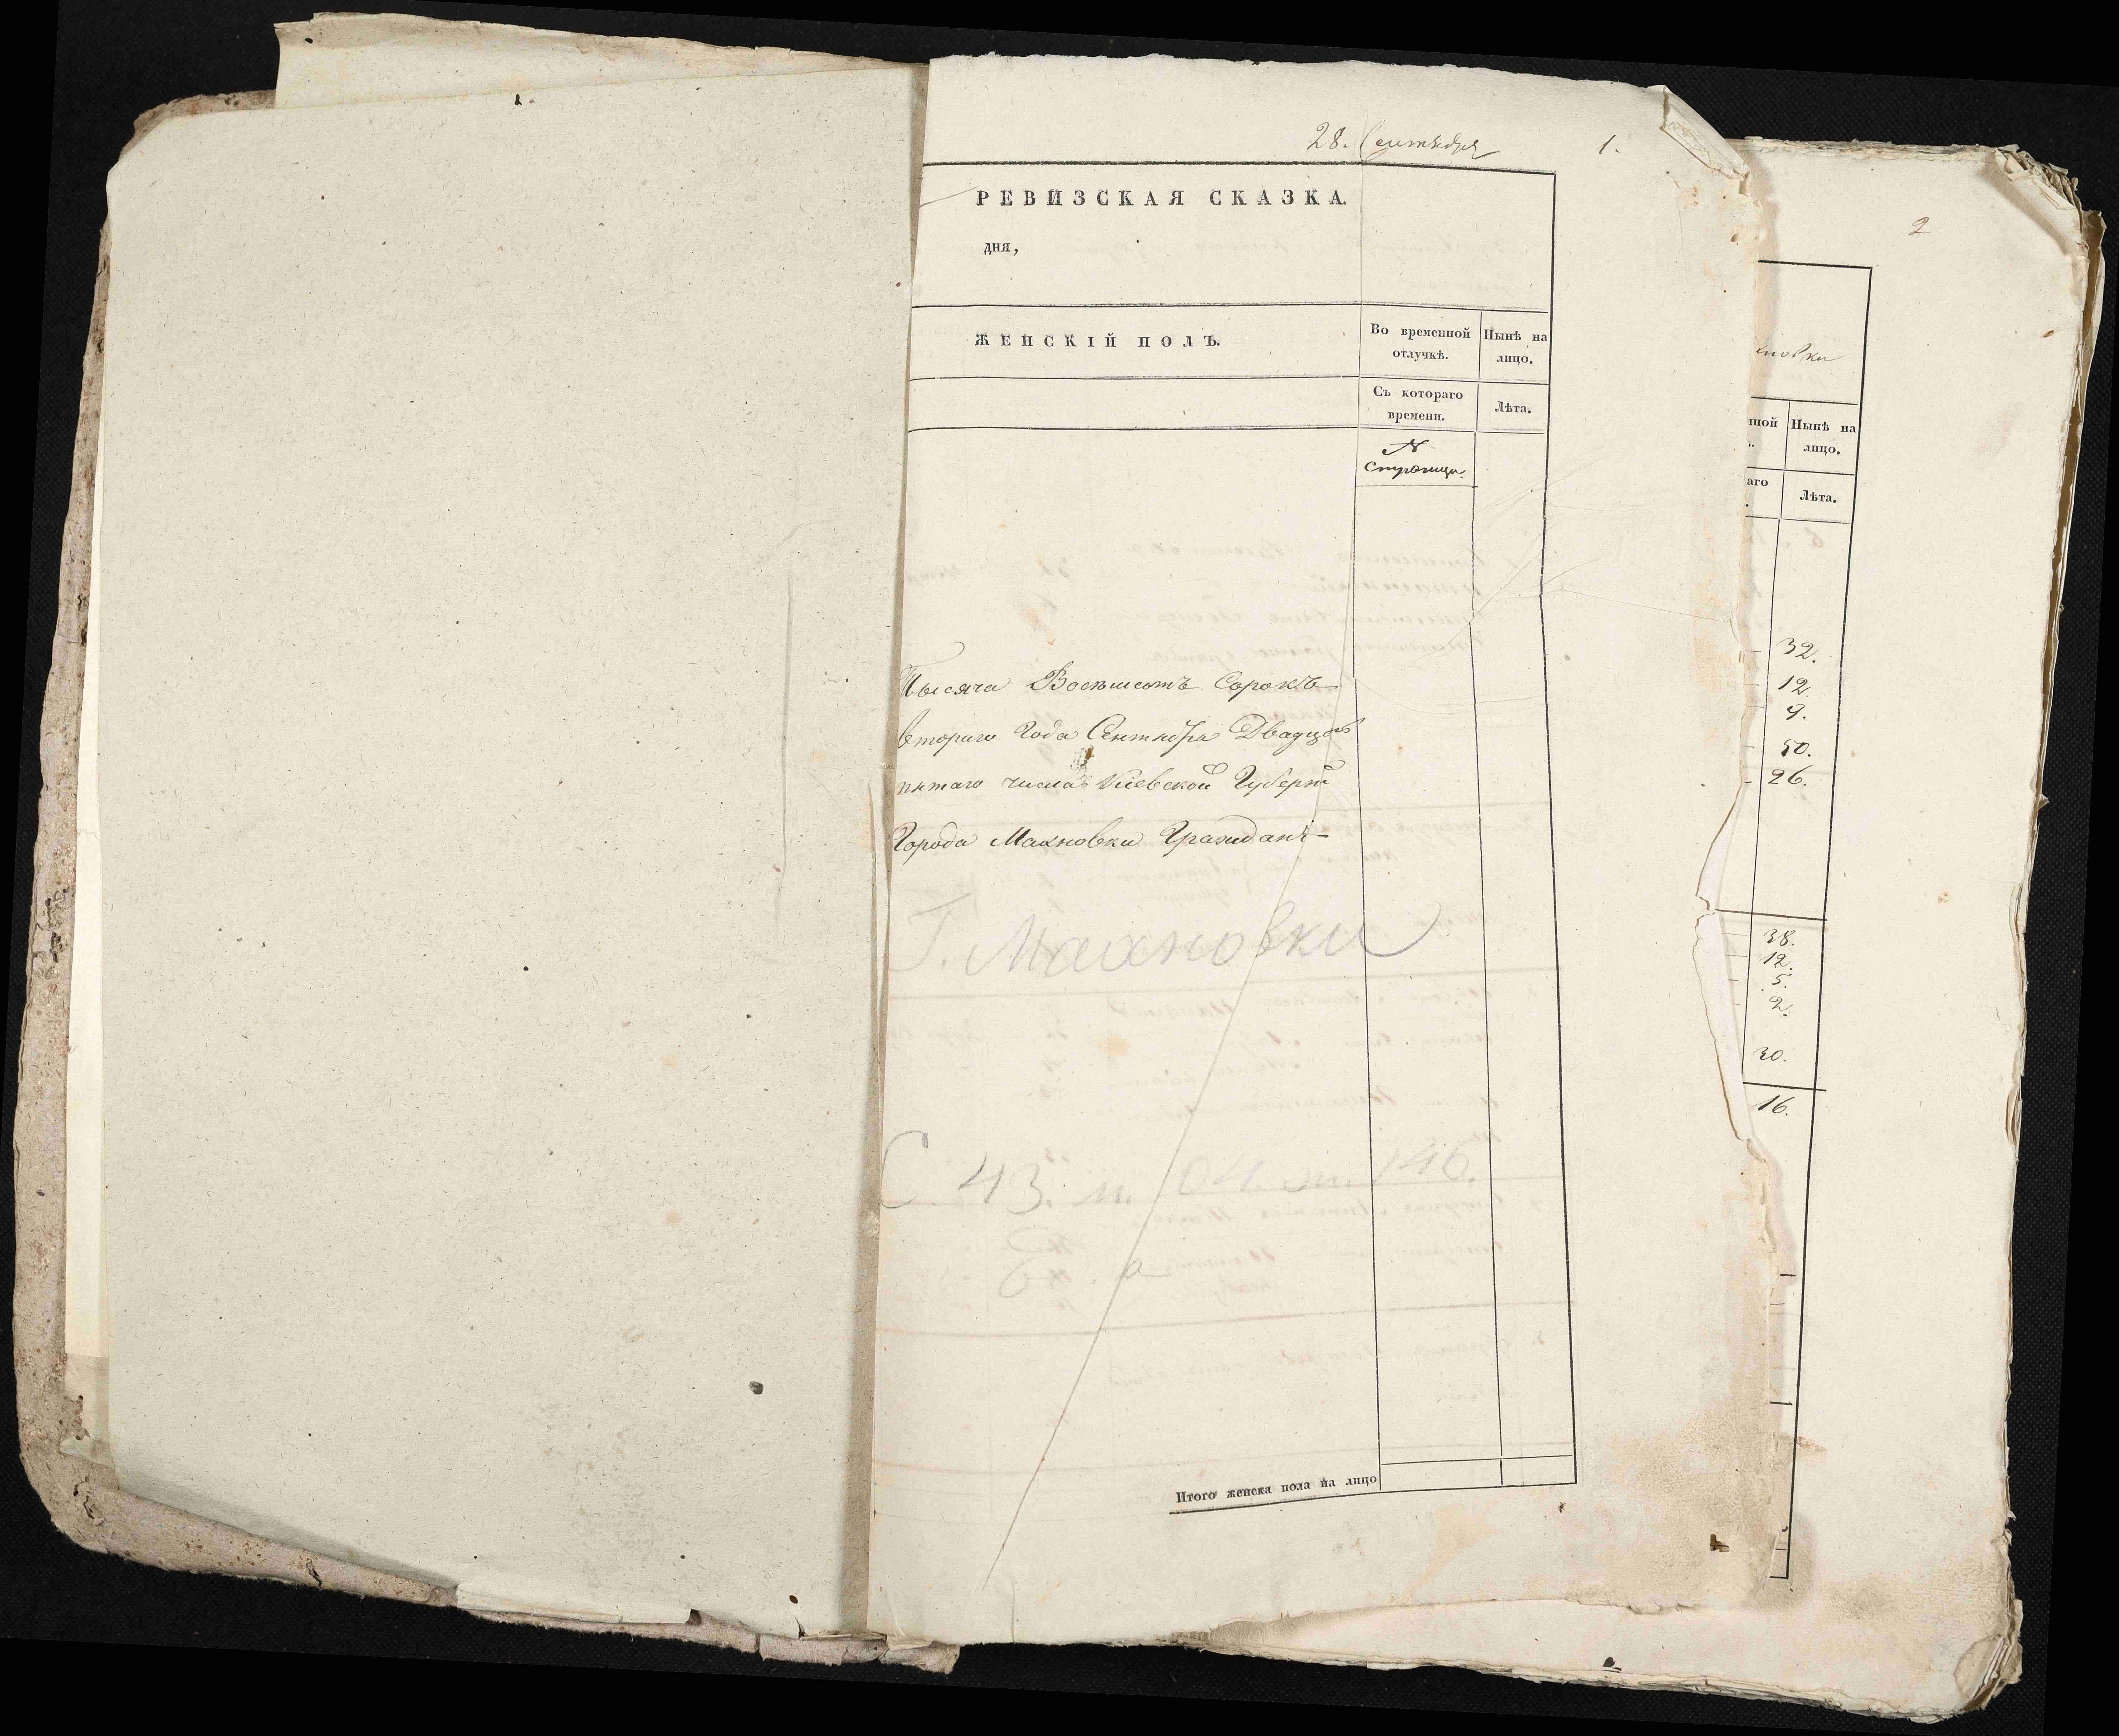 28. Сентября
1.
РЕВИЗСКАЯ СКАЗКА.
дня,
ЖЕНСКІЙ ПОЛЪ.
Во временной отлучкѣ.
Нынѣ на лицо.
Съ котораго времени.
Лѣта.
№
Страницы.
Тысяча Восемсотъ Сорокъ
втораго Года Сентября Двадцать
пятаго числа Кіевской Губерніи
Города Махновки Гражданъ
Г. Махновки
С 43. 146.
Итого женска пола на лицо
2
новки
нной
Нынѣ на
лицо.
аго
Лѣта.
32.
12.
9.
50.
26.
38.
12.
5.
2.
30.
16.